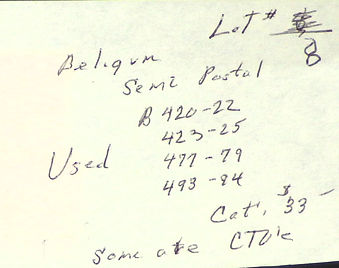 Lot #
Beligum
Semi Postal
B 420-22
423-25
Used 477-79
493-94
Cat. $33-
Some are CTO's